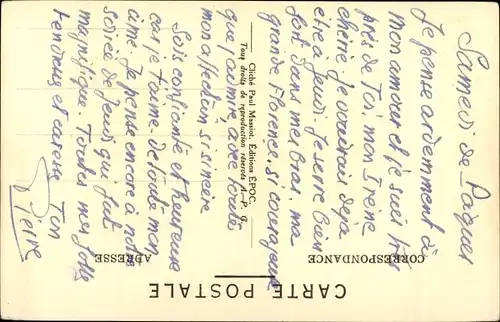 Samedi de Pâques
Je pense ardemment à
mon amour et je suis très
près de Toi, mon Irène
chérie je voudrais déjà
être à jeudi. Je serre bien
fort dans mes bras ma
grande Florence, si courageuse
que j'admire avec toute
mon affection si sincère
Sois confiante et heureuse
car je t'aime de toute mon
âme Je pense encore à notre
soirée de Jeudi qui fut
magnifique. Toutes mes folles
tendresses et caresses Ton
Pierre
Cliché Paul Massiot. Éditions ÉPOC.
Tous droits de reproduction réservés A.-P. G.
CORRESPONDANCE
ADRESSE
CARTE POSTALE